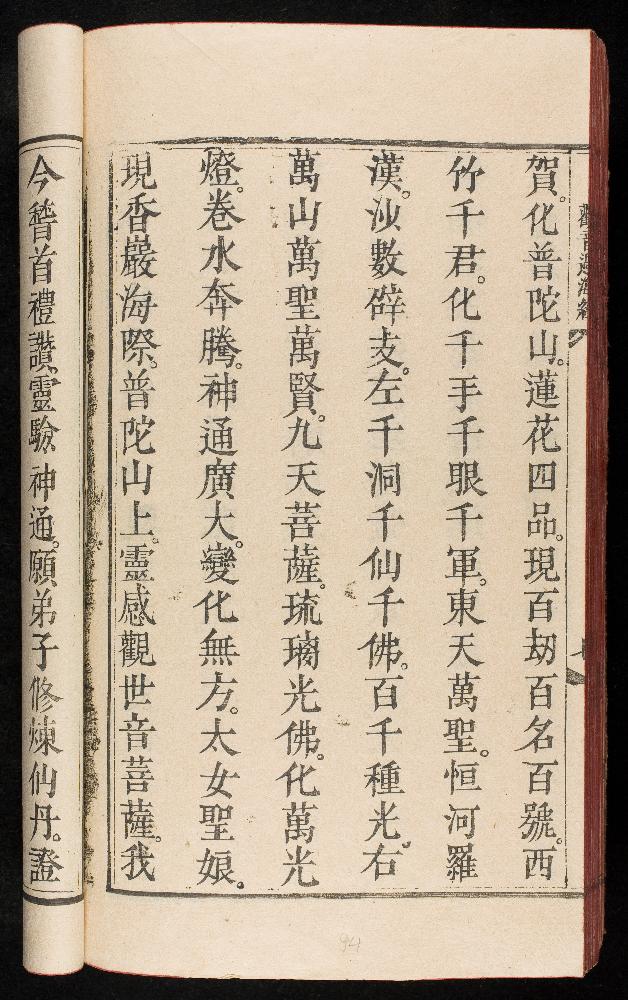 觀音過海經
賀。化普陀山。蓮花四品。現百劫百名百號。西
竹千君。化千手千眼千軍。東天萬聖。恒河羅
漢。沙數辟支。左千洞千仙千佛。百千種光。右
萬山萬聖萬賢。九天菩薩。琉璃光佛。化萬光
燈。卷水奔騰。神通廣大。變化無方。太女聖娘。
現香嚴海際。普陀山上。靈感觀世音菩薩。我
今稽首禮讚。靈驗神通。願弟子修煉仙丹。證
94